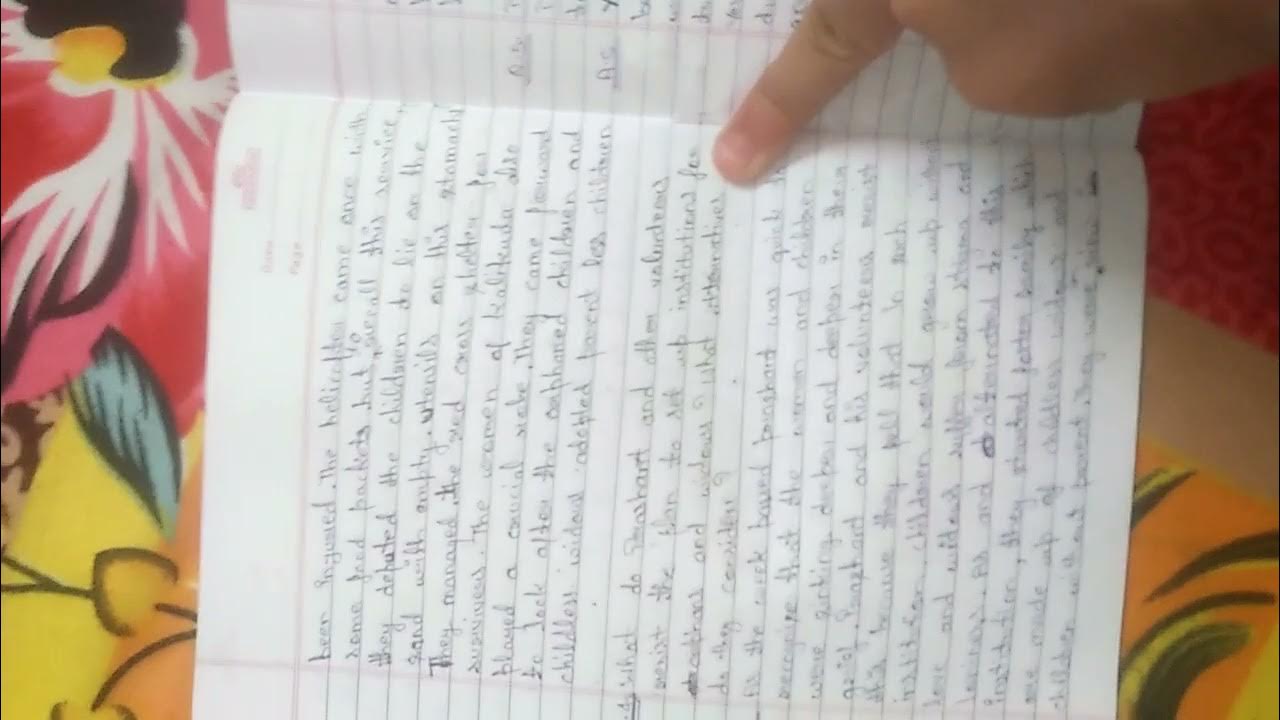 been Injured The helicopters came once with
some food packets but to overall this service,
they the children to lie on the
sand with empty utensils on his stomach
They managed the red cross shelter for
survivers. The women of Kalikuda also
played a crucial role. They came forward
to look after the orphaned children and
childless widow adopted parent less children
What do Prashant and other volunteers
resist the plan to set up institutions for
orphans and widows? What alternatives
do they consider?
As the week passed prashant was quick to
recognise that the women and children
were sinking deeper and deeper in their
grief Prashant and his volunteers resist
It's because they felt that in such
institution, children would grow up without
love and widows suffer from stigma and
loniness. As and alternated to this
institution, they started foster family which
are made up of childless widows and
children without parent they were
Date
Page